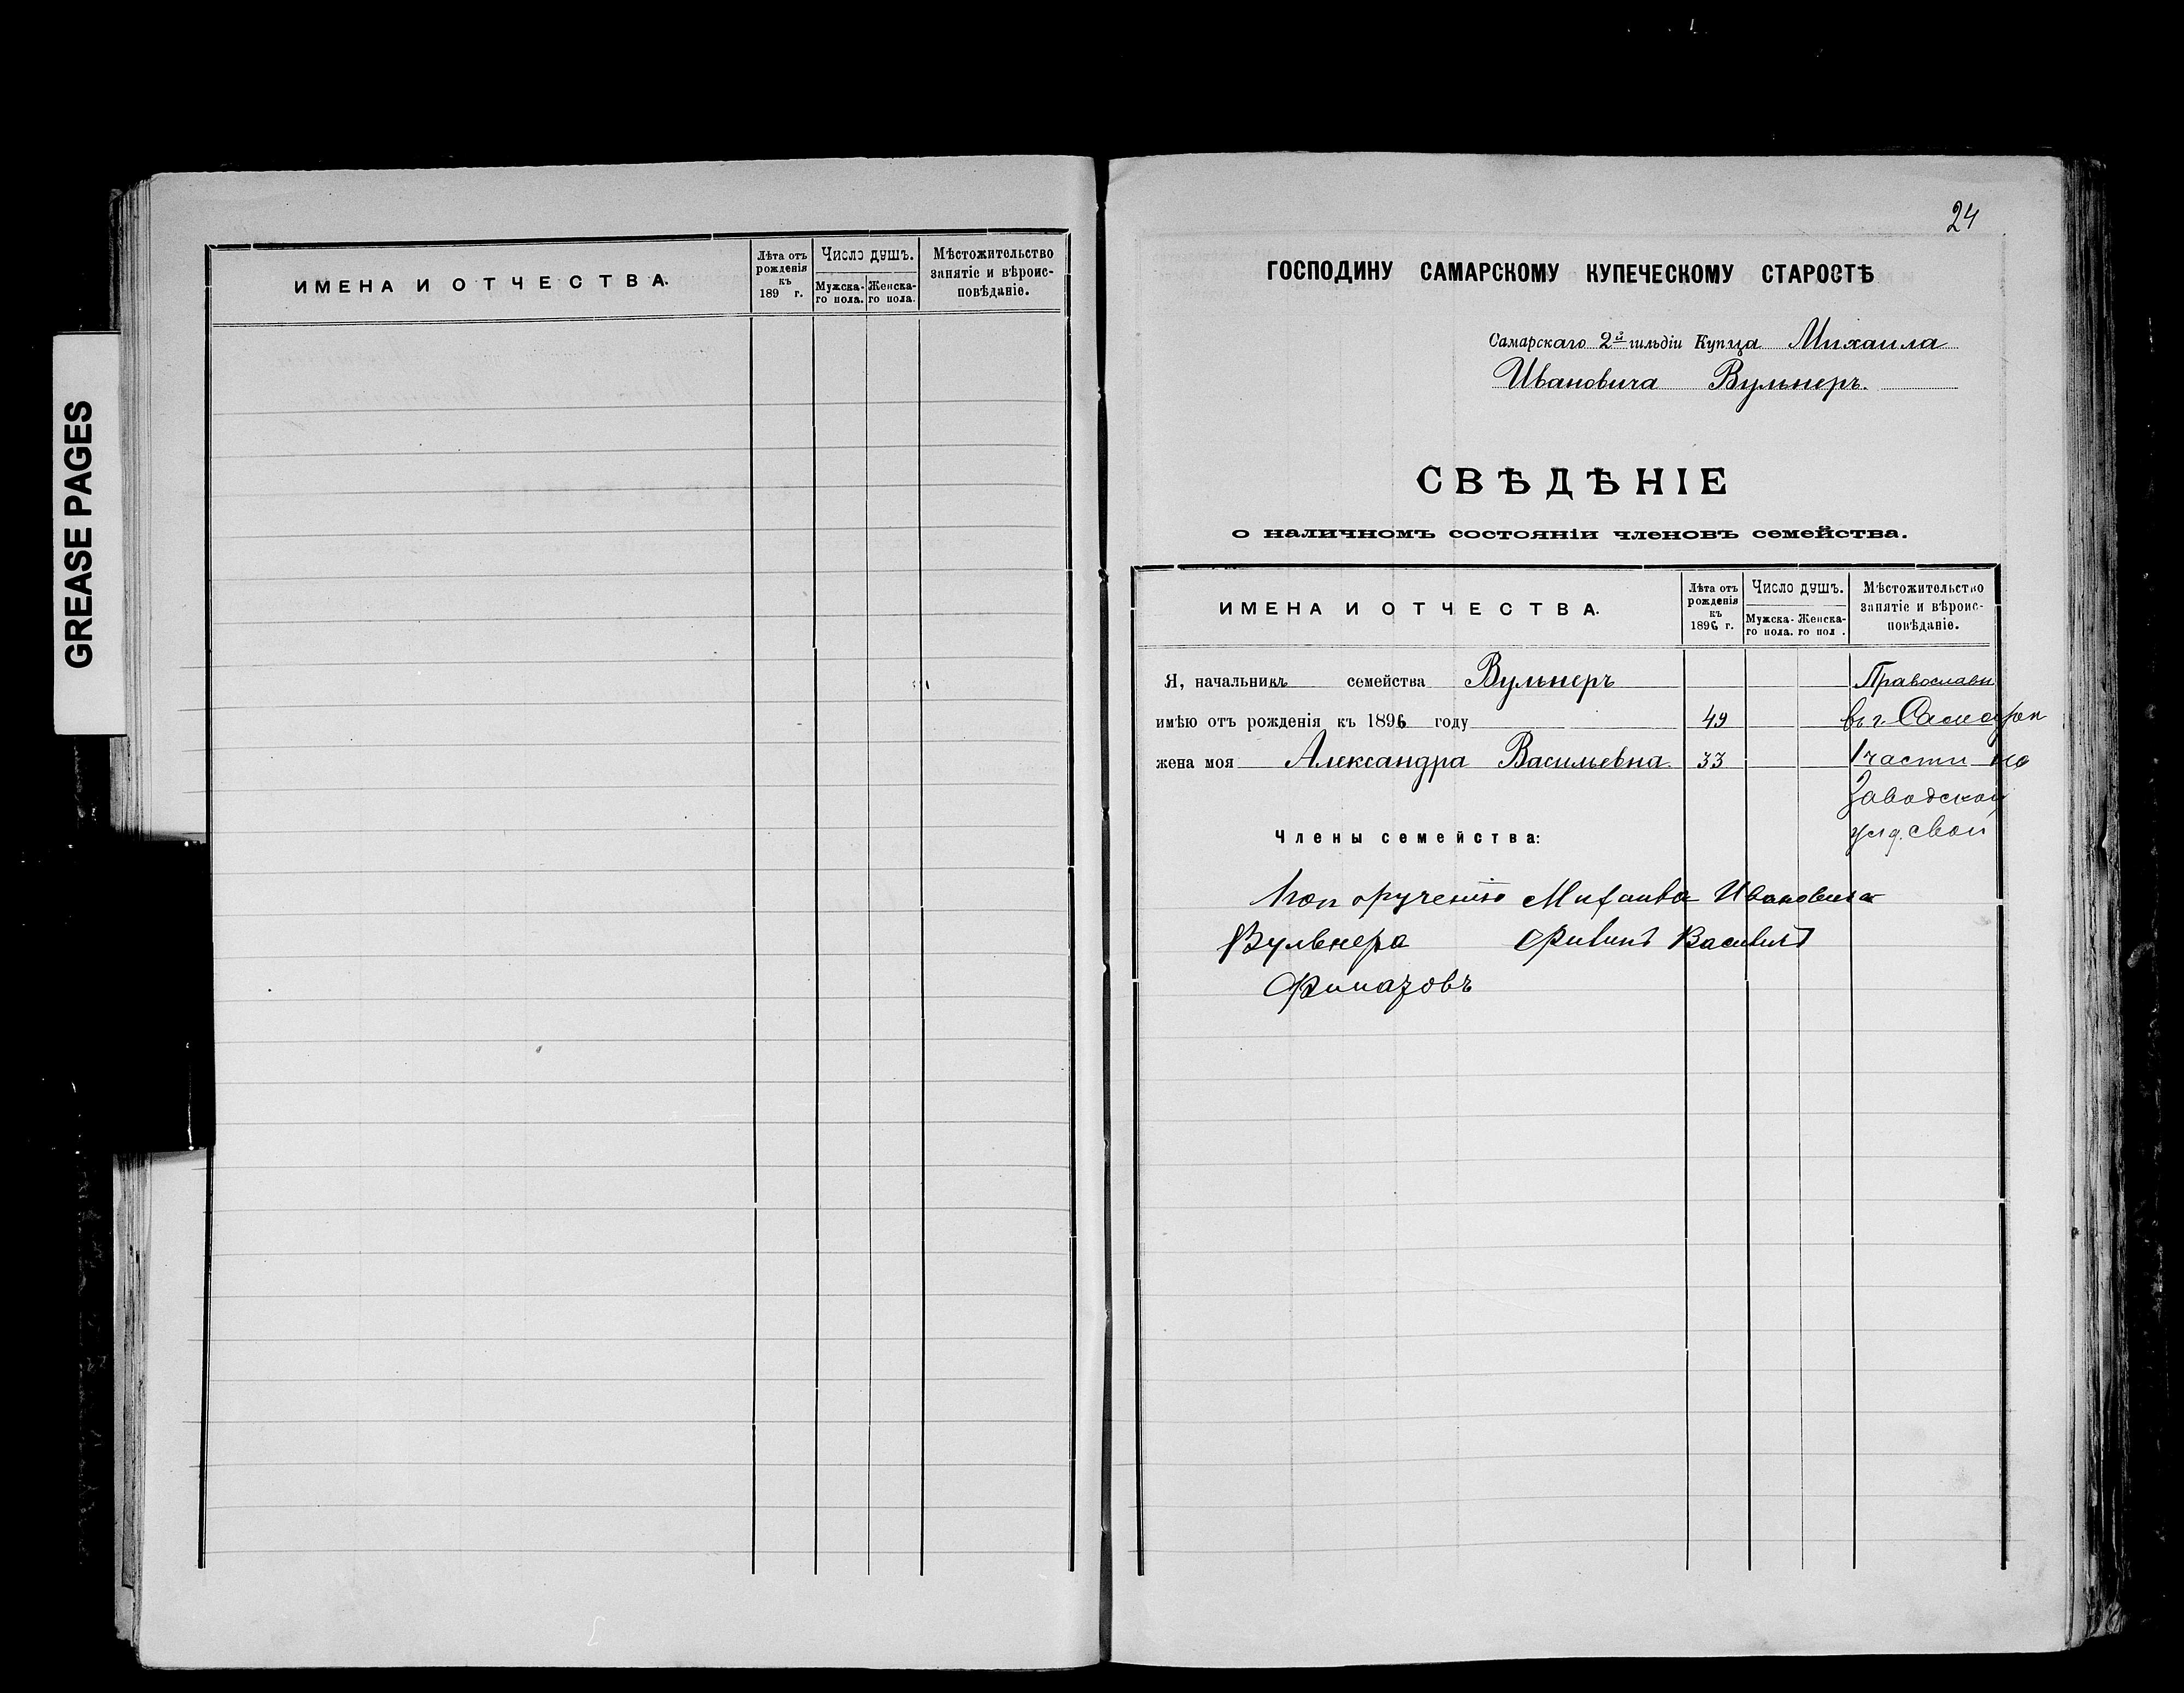 GREASE PAGES
ИМЕНА И ОТЧЕСТВА.
Лѣта отъ рожденія къ 189 г.
Число душъ.
Мужска-го пола.
Женска-го пола.
Мѣстожительство занятіе и вѣроис-повѣданіе.
24
ГОСПОДИНУ САМАРСКОМУ КУПЕЧЕСКОМУ СТАРОСТѢ
Самарскаго 2й гильдіи Купца Михаила
Ивановича Вульнеръ.
СВѢДѢНІЕ
о наличномъ состояніи членовъ семейства.
ИМЕНА И ОТЧЕСТВА.
Лѣта отъ рожденія къ 1896 г.
Число душъ.
Мужска-го пола.
Женска-го пол .
Мѣстожительство занятіе и вѣроис-повѣданіе.
Я, начальникъ семейства Вульнеръ Православн
имѣю отъ рожденія къ 1896 году 49 въ г. Самарѣ
жена моя Александра Васильевна 33 1 части на
Заводской
Члены семейства:
По порученію Михаила Ивановича
Вульнера Филипъ Васильевъ